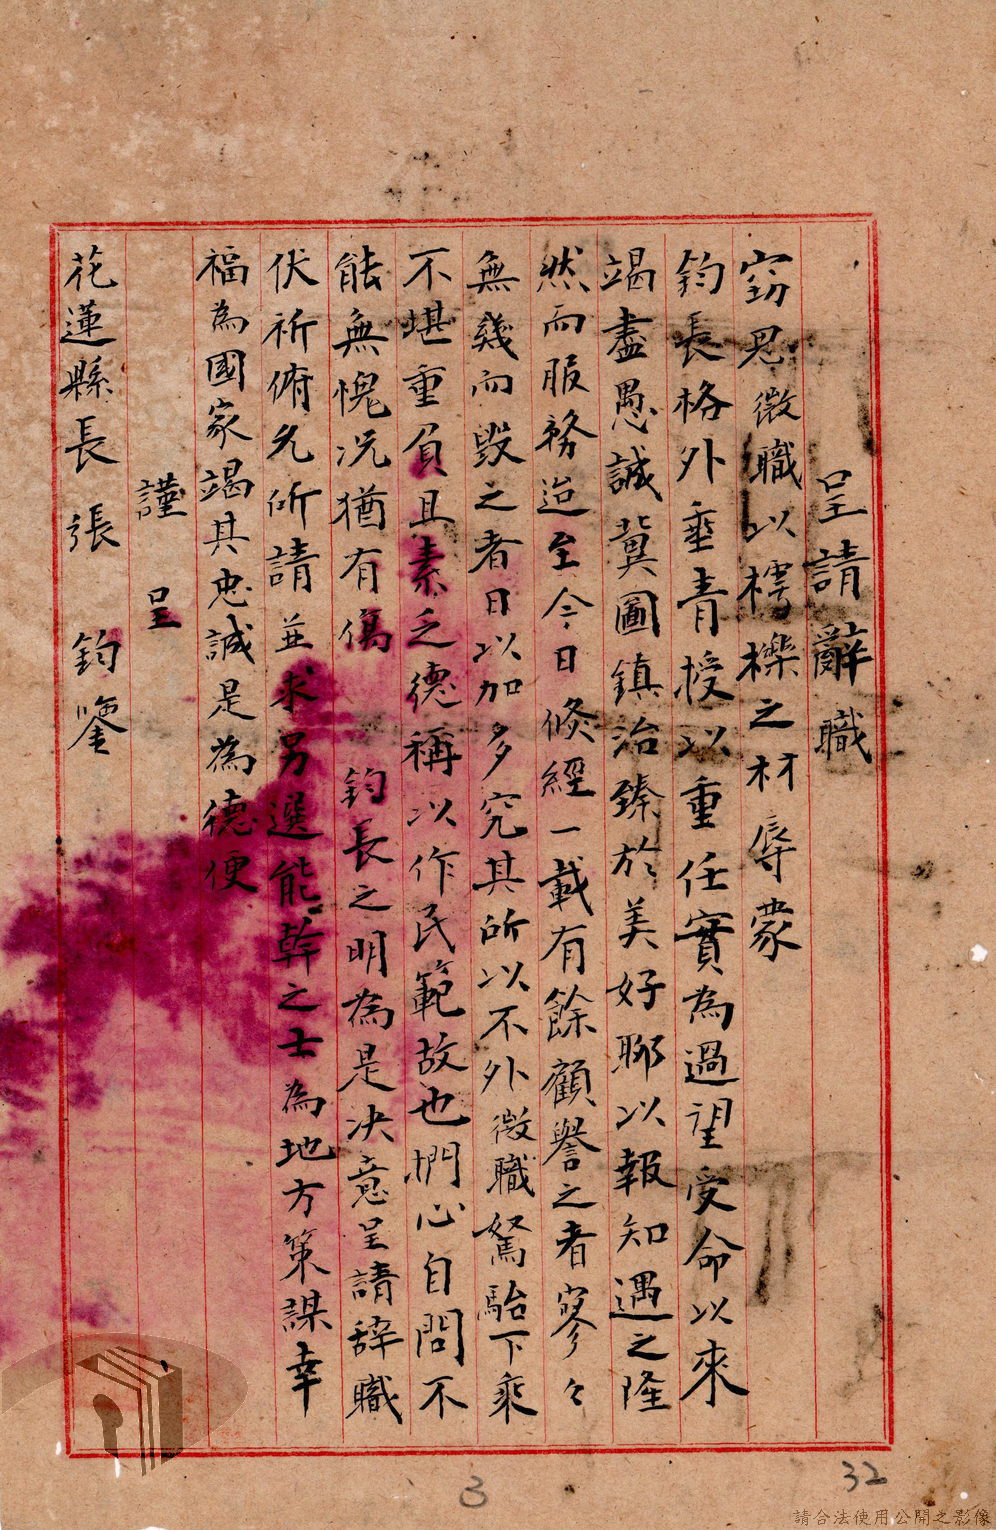 呈請辭職
竊思微職以樗櫟之材辱蒙
鈞長格外垂青授以重任實為過望受命以來
竭盡愚誠冀圖鎮治臻於美好聊以報知遇之隆
然而服務迨至今日倏經一載有餘顧譽之者寥々
無幾而毀之者日以加多究其所以不外微職駑駘下乘
不堪重負且素乏德稱以作民範故也捫心自問不
能無愧況猶有傷 鈞長之明為是決意呈請辞職
伏祈俯允所請並求另選能幹之士為地方策謀幸
福為國家竭其忠誠是為德便
謹呈
花蓮縣長張 鈞鑒
3
32
請合法使用公開之影像